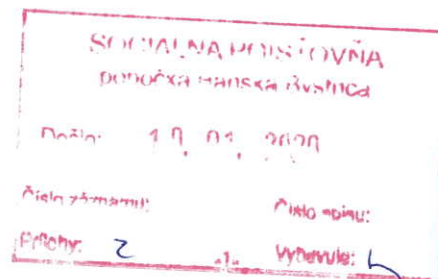 SOCIÁLNA POISŤOVŇA
pobočka Banská Bystrica
Došlo: 10. 01. 2020
Číslo záznamu: Číslo spisu:
Prílohy: 2 -1- Vybavuje: